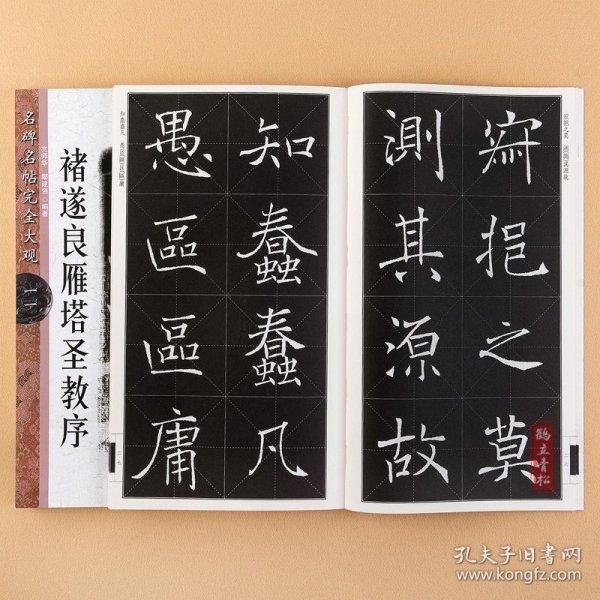 名碑名帖完全大观
褚遂良雁塔圣教序
寂挹之莫 测[測]其源故
寂挹之莫
測其源故
知蠢蠢凡 愚区[區]区[區]庸
知蠢蠢凡
愚區區庸
鹤立青松
孔夫子旧书网
www.kongfz.com